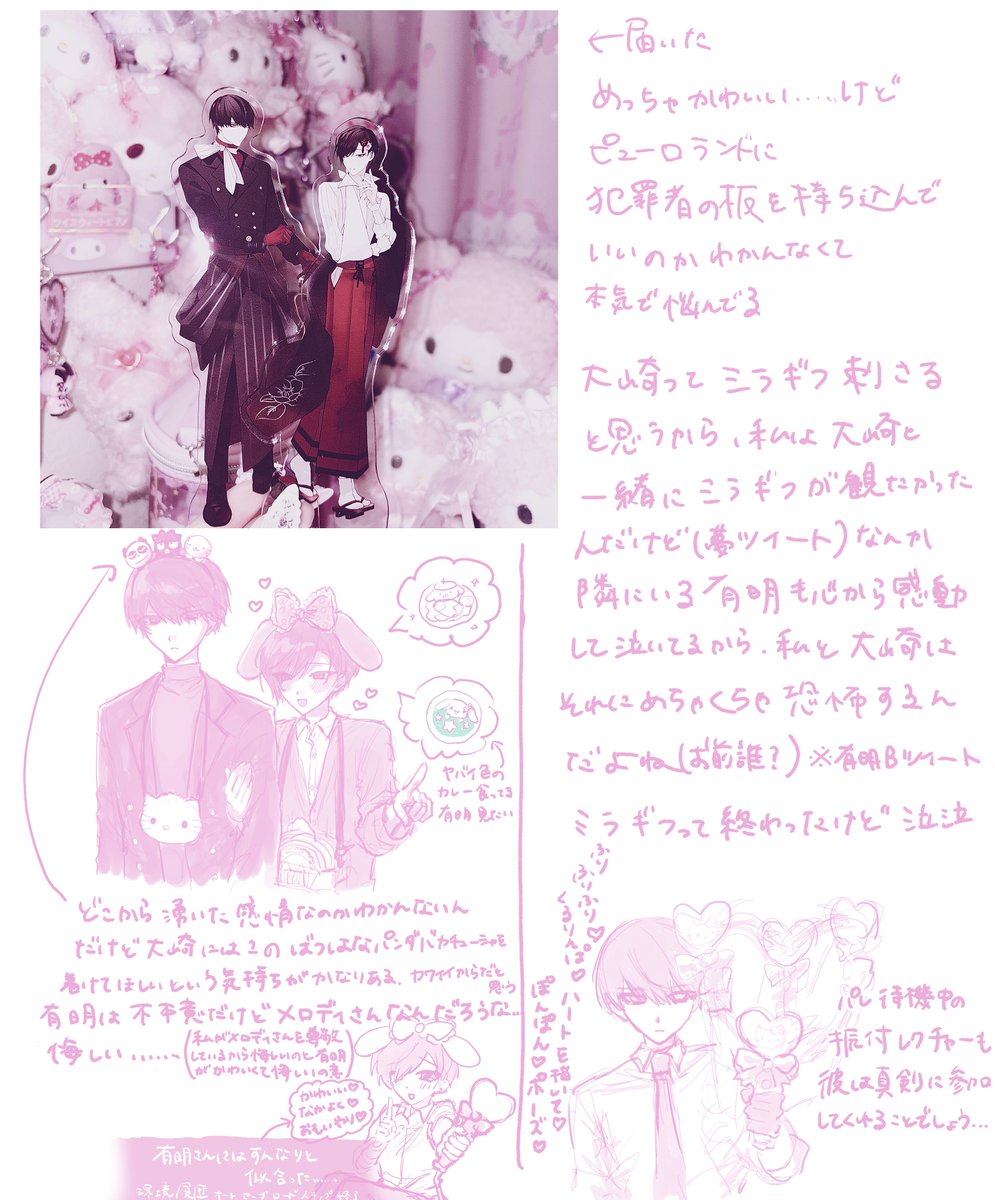 ←届いた
めっちゃかわいい.....けど
ピューロランドに
犯罪者の板を持ち込んで
いいのかわかんなくて
本気で悩んでる
大崎ってミラギフ刺さる
と思うから、私は大崎と
一緒にミラギフが観たかった
んだけど(夢ツイート)なんか
隣にいる有明も心から感動
して泣いてるから、私と大崎は
それにめちゃくちゃ恐怖するん
だよね(お前誰?)※有明Bツイート
ミラギフって終わったけど泣泣
ヤバイ色の
カレー食ってる
有明見たい
どこから湧いた感情なのかわかんないん
だけど大崎にはこのばつばつしょなパンダバカチューシャを
着けてほしいという気持ちがかなりある、カワイイからだと
思う
有明は不本意だけどメロディさんなんだろうな...
悔しい......
(私がメロディさんを尊敬
しているから悔しいのと有明
がかわいくて悔しいの意)
かわいい♡
なかよく♡
おもいやり♡
有明さんにはすんなりと
似合った......
ふりふりふり♡
くるりんぱ♡
ハートを描いて♡
ぽんぽん♡ポーズ♡
パレ待機中の
振付レクチャーも
彼は真剣に参加
してくれることでしょう...